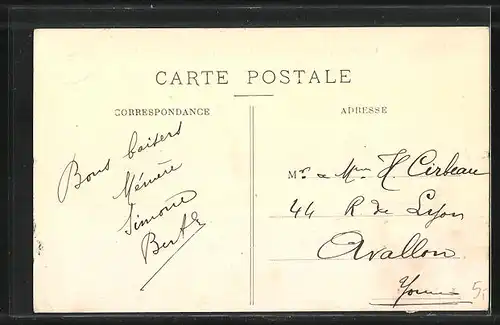 CARTE POSTALE
CORRESPONDANCE
Bons baisers
Mémère
Simone
Berthe
ADRESSE
Mr & Mme H. Cirbeau
44 R de Lyon
Avallon
Yonne
5.